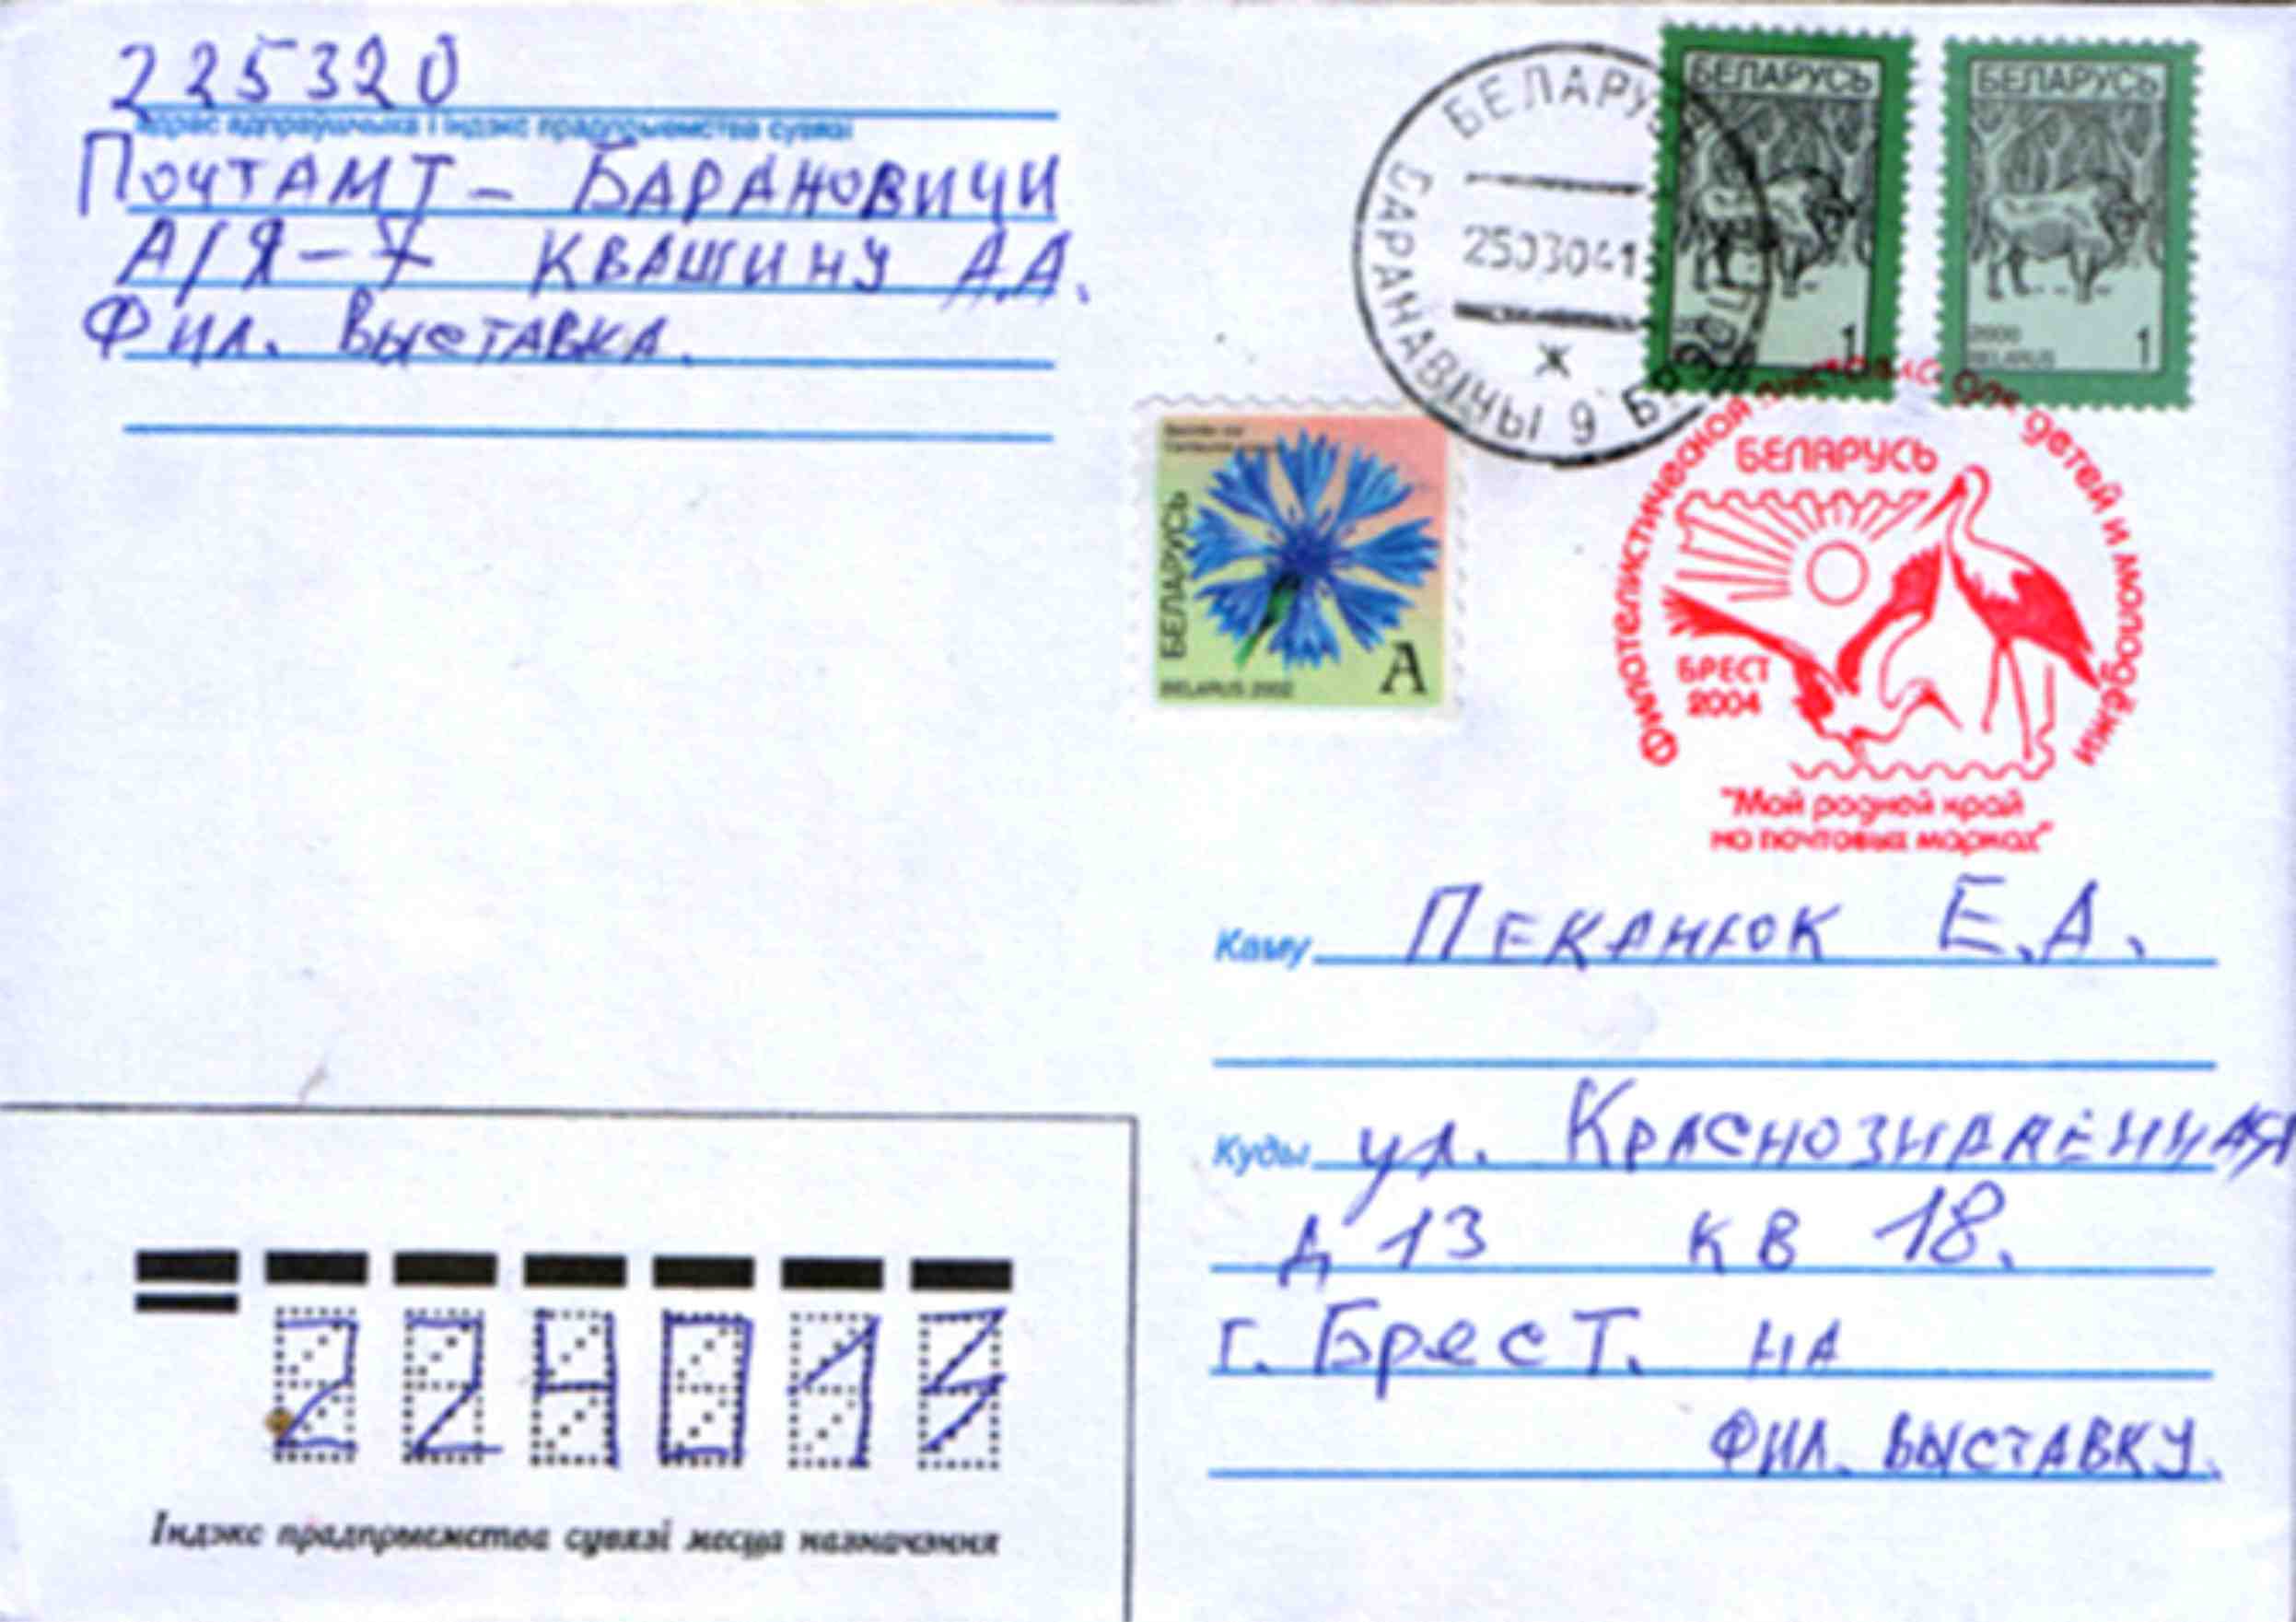 225320
Адрас адпраўшчыка і індэкс прадпрыемства сувязі
Почтамт - Барановичи
А/Я - 7 Квашину А.А.
Фил. Выставка.
БЕЛАРУСЬ
БАРАНАВІЧЫ 9 БРЭСТ
2503041
Ж
БЕЛАРУСЬ
2000
BELARUS
1
БЕЛАРУСЬ
2000
BELARUS
1
БЕЛАРУСЬ
A
BELARUS 2002
Филателистическая выставка для детей и молодёжи
БЕЛАРУСЬ
БРЕСТ
2004
"Мой родной край
на почтовых марках"
Каму Пеканюк Е.А.
Куды ул. Краснознамённая
д 13 кв 18.
г. Брест. на
фил. выставку.
224013
Індэкс прадпрыемства сувязі месца назначэння